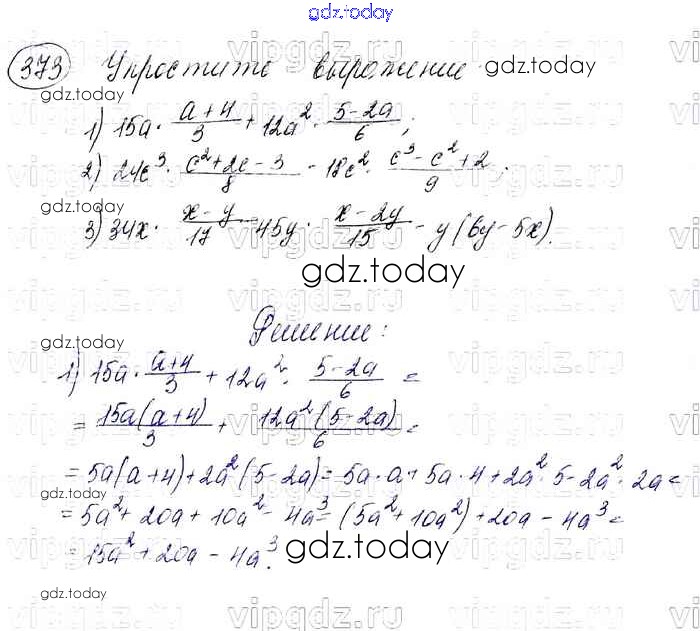 gdz.today
373 Упростите выражение gdz.today
gdz.today
1) 15a · (a+4)/3 + 12a² · (5-2a)/6;
2) 24c³ · (c²+2c-3)/8 - 18c² · (c³-c²+2)/9;
gdz.today
3) 34x · (x-y)/17 - 45y · (x-2y)/15 - y(6y-5x).
gdz.today
Решение:
gdz.today
1) 15a · (a+4)/3 + 12a² · (5-2a)/6 =
= 15a(a+4)/3 + 12a²(5-2a)/6 =
= 5a(a+4)+2a²(5-2a) = 5a·a+5a·4+2a²·5-2a²·2a =
gdz.today
= 5a²+20a+10a²-4a³ = (5a²+10a²)+20a-4a³ =
= 15a²+20a-4a³. gdz.today
gdz.today
vipgdz.ru